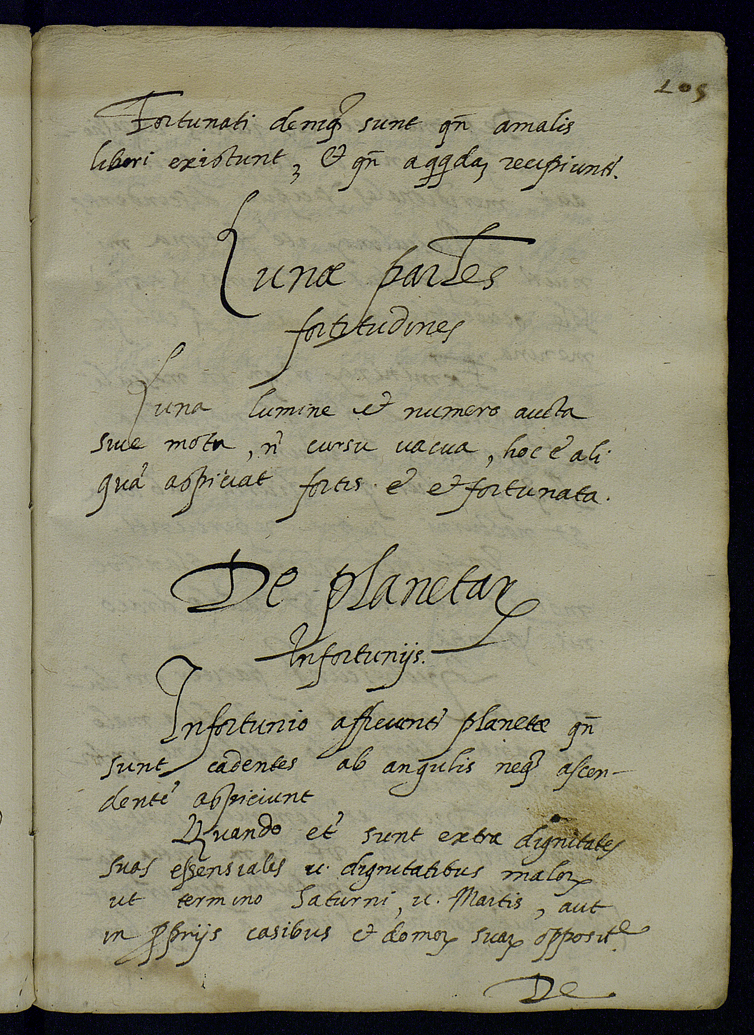 105
Fortunati deniq3 sunt qn̄ amalis
liberi existunt, Et qn̄ recipiunt̃.
Lunæ partes
fortitudines
Luna lumine et numero aucta
sive mota, ñ cursu vacua, hoc ẽ ali
quã aspiciat fortis ẽ et fortunata.
De planetaꝝ
Infortunijs.
Infortunio afficiunt̃ planetæ qn̄
sunt cadentes ab angulis neq3 ascen-
dentẽ aspiciunt
Quando et̃ sunt extra dignitates
suas essensiales u. dignitatibus maloꝝ
ut termino Saturni, u. Martis, aut
in ꝓprijs casibus et domoꝝ suaꝝ opposite
De